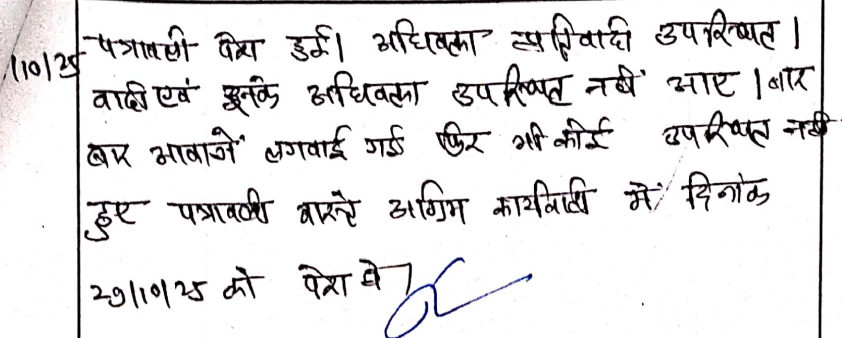 /10/25 पत्रावली पेश हुई। अधिवक्ता प्रतिवादी उपस्थित।
वादी एवं इनके अधिवक्ता उपस्थित नहीं आए। बार
बार आवाजें लगवाई गई फिर भी कोई उपस्थित नही
हुए पत्रावली वास्ते अग्रिम कार्यवाही में दिनांक
29/10/25 को पेश हो।